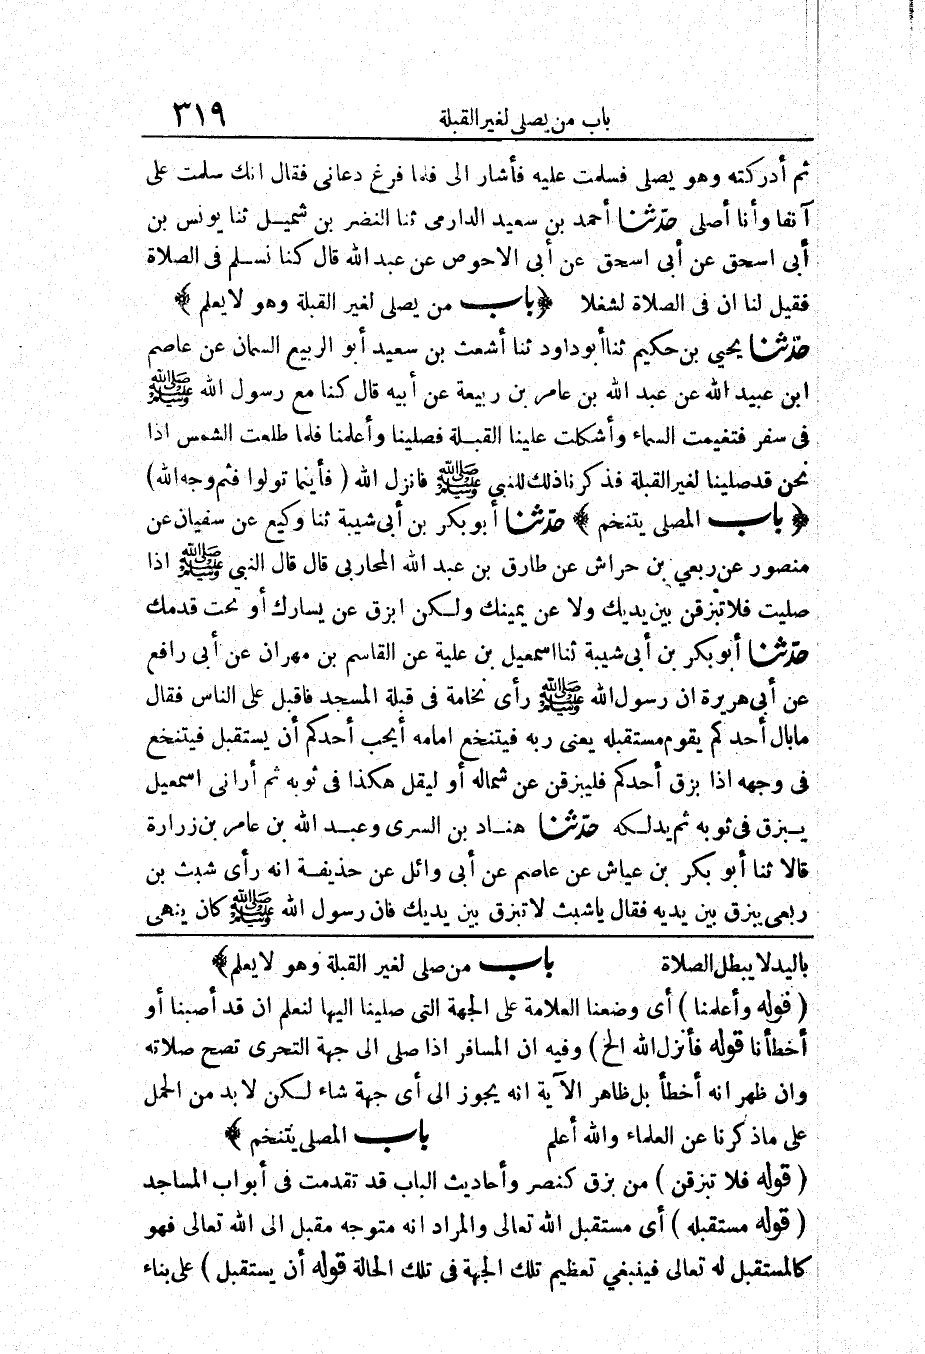 باب من يصلى لغير القبلة ٣١٩
ثم أدركته وهو يصلى فسلمت عليه فأشار الى فلما فرغ دعانى فقال انك سلمت على
آنفا وأنا أصلى حدّثنا أحمد بن سعيد الدارمى ثنا النضر بن شميـل ثنا يونس بن
أبى اسحق عن أبى اسحق عن أبى الاحوص عن عبد الله قال كنا نسـلم فى الصلاة
فقيل لنا ان فى الصلاة لشغلا ﴿ باب من يصلى لغير القبلة وهو لا يعلم ﴾
حدّثنا يحيي بن حكيم ثنا أبو داود ثنا أشعث بن سعيد أبو الربيع السمان عن عاصم
ابن عبيد الله عن عبد الله بن عامر بن ربيعة عن أبيه قال كنا مع رسول الله ﷺ
فى سفر فتغيمت السماء وأشكلت علينا القبـلة فصلينا وأعلمنا فلما طلعت الشمس اذا
نحن قد صلينا لغير القبلة فذكرنا ذلك للنبى ﷺ فانزل الله ( فأينما تولوا فثم وجه الله )
﴿ باب المصلى يتنخم ﴾ حدّثنا أبو بكر بن أبى شيبة ثنا وكيع عن سفيان عن
منصور عن ربعي بن حراش عن طارق بن عبد الله المحاربى قال قال النبى ﷺ اذا
صليت فلا تبزقن بين يديك ولا عن يمينك ولـكن ابزق عن يسارك أو تحت قدمك
حدّثنا أبو بكر بن أبى شيبة ثنا اسمعيل بن علية عن القاسم بن مهران عن أبى رافع
عن أبى هريرة ان رسول الله ﷺ رأى نخامة فى قبلة المسجد فاقبل على الناس فقال
ما بال أحدكم يقوم مستقبله يعنى ربه فيتنخع امامه أيحب أحدكم أن يستقبل فيتنخع
فى وجهه اذا بزق أحدكم فليبزقن عن شماله أو ليقل هكذا فى ثوبه ثم أرانى اسمعيل
يـبزق فى ثوبه ثم يدلـكه حدّثنا هنـاد بن السرى وعبـد الله بن عامر بن زرارة
قالا ثنا أبو بكر بن عياش عن عاصم عن أبى وائل عن حذيفـة انه رأى شبث بن
ربعى يبزق بين يديه فقال يا شبث لا تبزق بين يديك فان رسول الله ﷺ كان ينهى
باليد لا يبطل الصلاة باب من صلى لغير القبلة وهو لا يعلم ﴾
( قوله وأعلمنا ) أى وضعنا العلامة على الجهة التى صلينا اليها لنعلم ان قد أصبنا أو
أخطأنا قوله فأنزل الله الخ ) وفيه ان المسافر اذا صلى الى جهة التحرى تصح صلاته
وان ظهر انه أخطأ بل ظاهر الآية انه يجوز الى أى جهة شاء لـكن لا بد من الحمل
على ما ذكرنا عن العلماء والله أعلم باب المصلى يتنخم ﴾
( قوله فلا تبزقن ) من بزق كنصر وأحاديث الباب قد تقدمت فى أبواب المساجد
( قوله مستقبله ) أى مستقبل الله تعالى والمراد انه متوجه مقبل الى الله تعالى فهو
كالمستقبل له تعالى فينبغي تعظيم تلك الجهة فى تلك الحالة قوله أن يستقبل ) على بناء